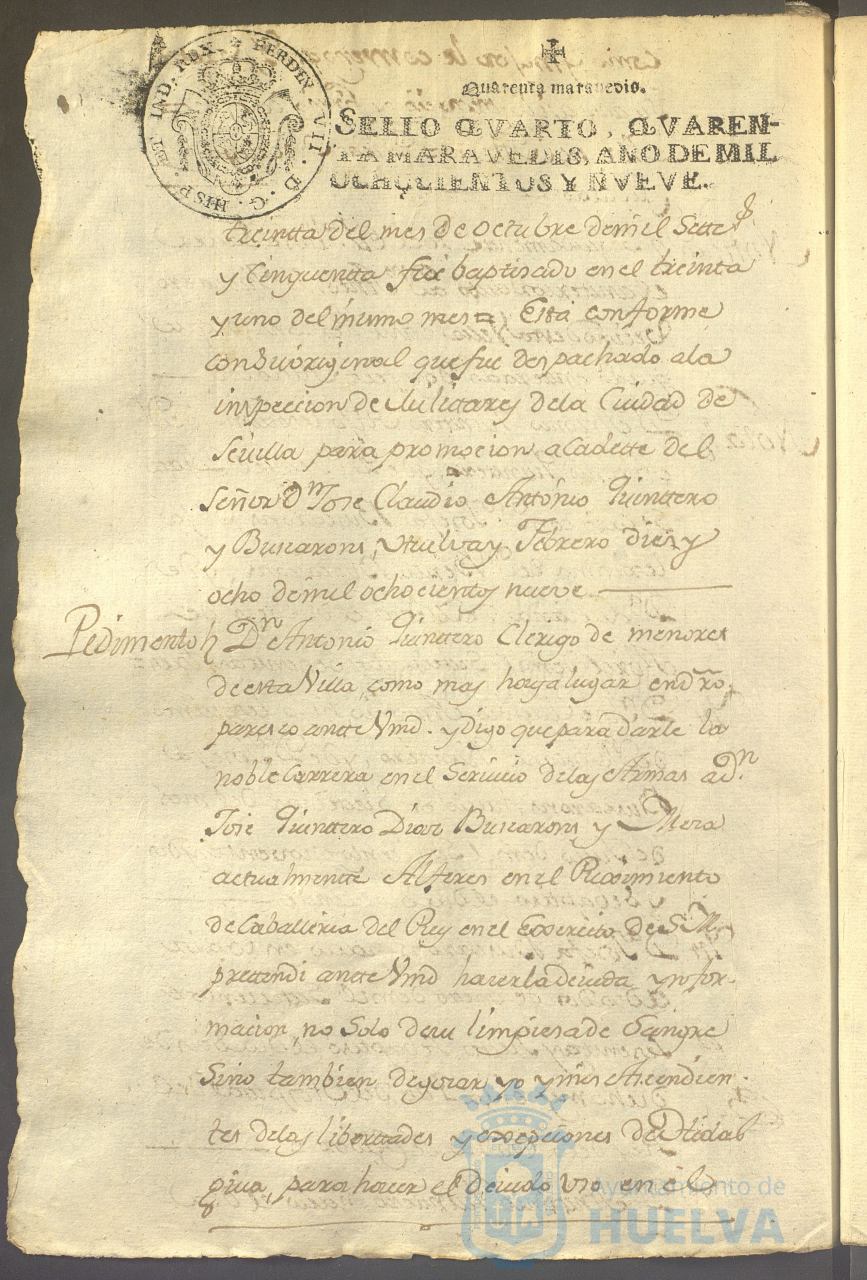 HISP. ET IND. REX. FERDIN. VII. D. G.
Quarenta maravedis.
SELLO QVARTO, QVAREN-
TA MARAVEDIS, AÑO DE MIL
OCHOCIENTOS Y NVEVE.
treintta del mes de octubre de mil Sette
y Cinquentta fue baptisado en el treinta
y uno del mismo mes = Esta conforme
con su original que fue despachado a la
inspeccion de Militares de la Ciudad de
Sevilla para promocion a Cadette del
Señor Dn. Jose Claudio Anttonio Quinttero
y Buscarons, Huelva y Febrero dies y
ocho de mil ocho cientos nueve
Pedimento Dn. Antonio Quinttero Clerigo de menores
de esta Villa, como mas haya lugar en dro.
paresco antte Vmd. y digo que para darle la
noble Carrera en el Servicio de las Armas a Dn.
Jose Quinttero Diaz Buscarons y Mora
actualmente Alferes en el Reximiento
de Caballeria del Rey en el Exercito de S. M.
prettendi antte Vmd hacer la devida ynfor-
macion, no Solo de su limpiesa de Sangre
Sino tambien de gosar yo y mis Ascendien-
tes de las liberttades y excepciones de Hidal
guia, para hacer el Devido uso en el
Ayuntamiento de
HUELVA